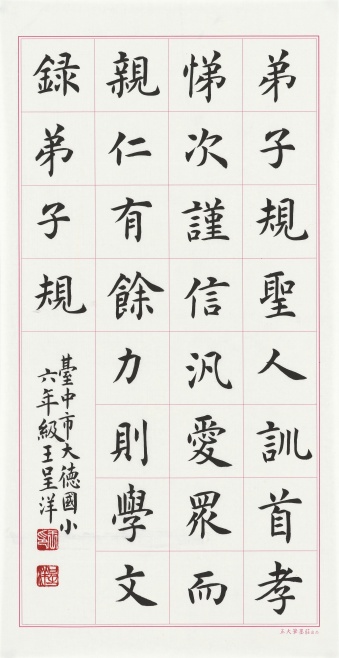 弟子規聖人訓首孝
悌次謹信汎愛眾而
親仁有餘力則學文
録弟子規
臺中市大德國小
六年級王呈洋